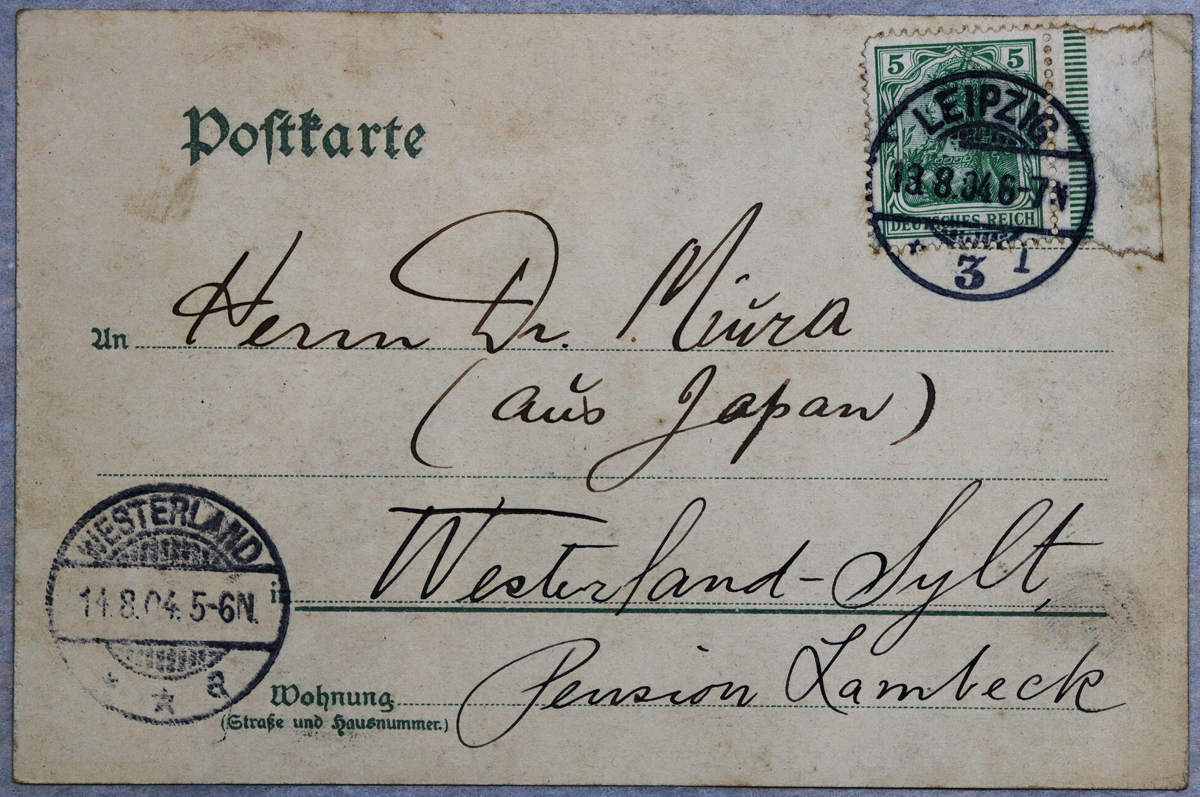 Postkarte
5 5
DEUTSCHES REICH
LEIPZIG
13.8.04 6-7 N
* 3 1
An Herrn Dr. Miura
(aus Japan)
in Westerland-Sylt,
Wohnung Pension Lambeck
(Straße und Hausnummer.)
WESTERLAND
14.8.04. 5-6N.
* * a